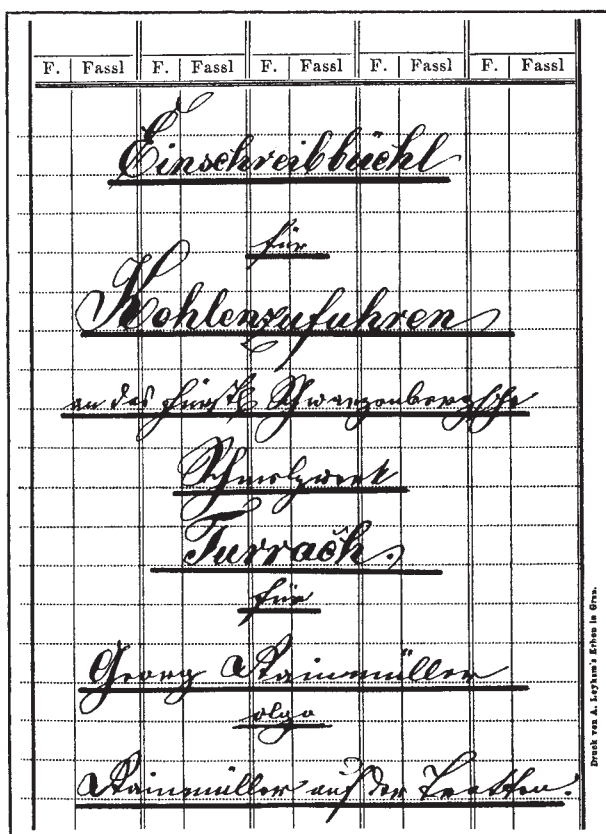 F. Fassl F. Fassl F. Fassl F. Fassl F. Fassl
Einschreibbüchl
für
Kohlenzufuhren
an das fürstl Schwarzenbergsche
Schmelzwerk
Turrach.
für
Georg Steinmüller
olgo
Steinmüller auf der Tratten.
Druck von A. Leykam's Erben in Graz.